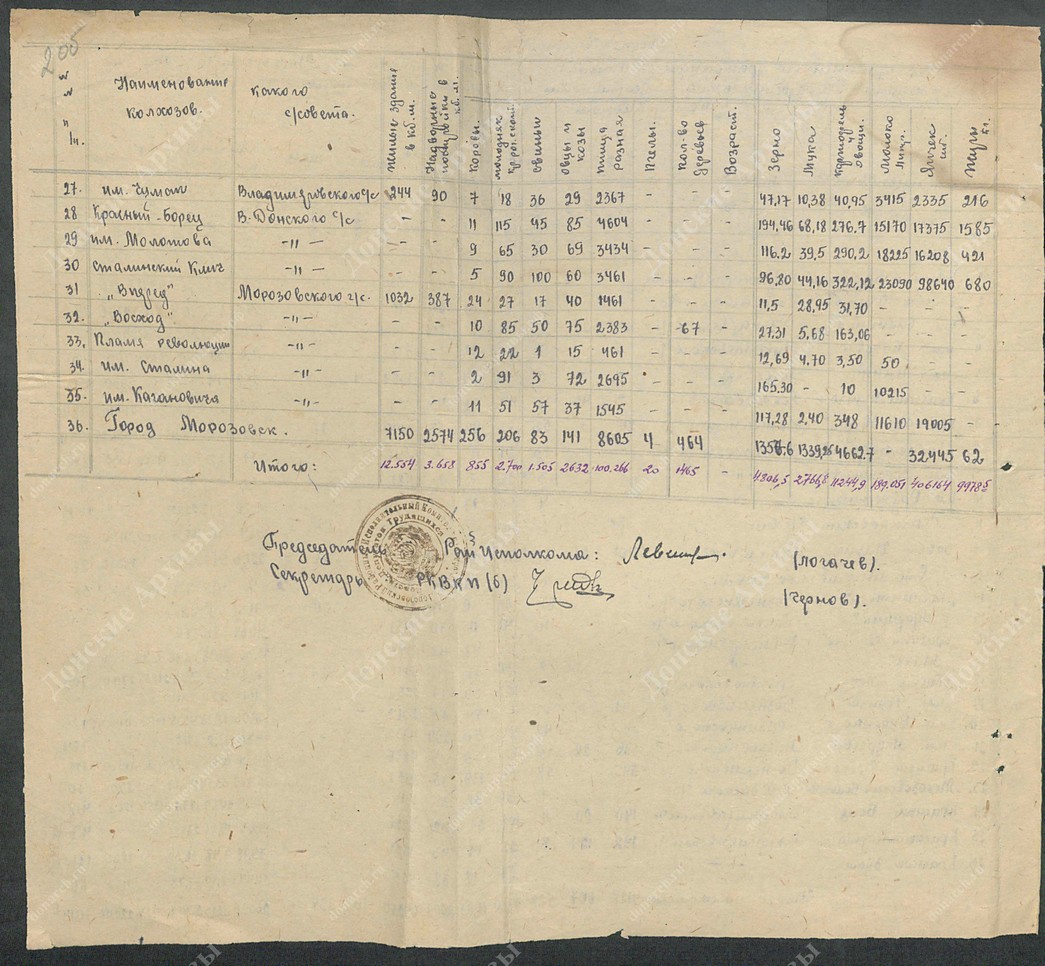 205
№ № п/п. Наименование колхозов. какого с/совета. Жилые здания в кб.м. Надворные постройки в кб.м. Коровы. молодняк кр.рог.скот. свиньи овцы и козы птица разная Пчелы. Кол-во деревьев Возраст. Зерно Мука Картофель и овощи. Молоко литр. Яичек шт.
27. им. Чумак Владимировского с/с 244 90 7 18 36 29 2367 - - - 47,17 10,38 40,95 3415 2335 216
28 Красный-борец В-Донского с/с - - 11 115 45 85 4604 - - - 194,46 68,18 276.7 15170 17375 1585
29 им. Молотова -"- - - 9 65 30 69 3434 - - - 116.2 39,5 290,2 18225 16208 421
30 Сталинский Клич -"- - - 5 90 100 60 3461 - - - 96,80 44,16 322,12 23090 98640 680
31 "Вперед" Морозовского г/с. 1032 387 24 27 17 40 1461 - - - 11,5 28,95 31,70 - - -
32. "Восход" -"- - - 10 85 50 75 2383 - -67 - 27.31 5,68 163,06 - - -
33. Пламя революции -"- - - 12 22 1 15 461 - - - 12,69 4.70 3,50 50 - -
34. им. Сталина -"- - - 2 91 3 72 2695 - - - 165.30 - 10 10215 - -
35. им. Кагановича -"- - - 11 51 57 37 1545 - - - 117,28 2,40 348 11610 19005 -
36. Город Морозовск. 7150 2574 256 206 83 141 8605 4 464 - 1339,25 4662.7 - 32445 62
Итого: 12.554 3.658 855 2.700 1.505 2632 100.266 20 1465 - 4806,5 2766,8 11244,9 189.051 406164 9978
Председатель Райисполкома: (Логачев).
Секретарь РКВКП(б) (Чернов).